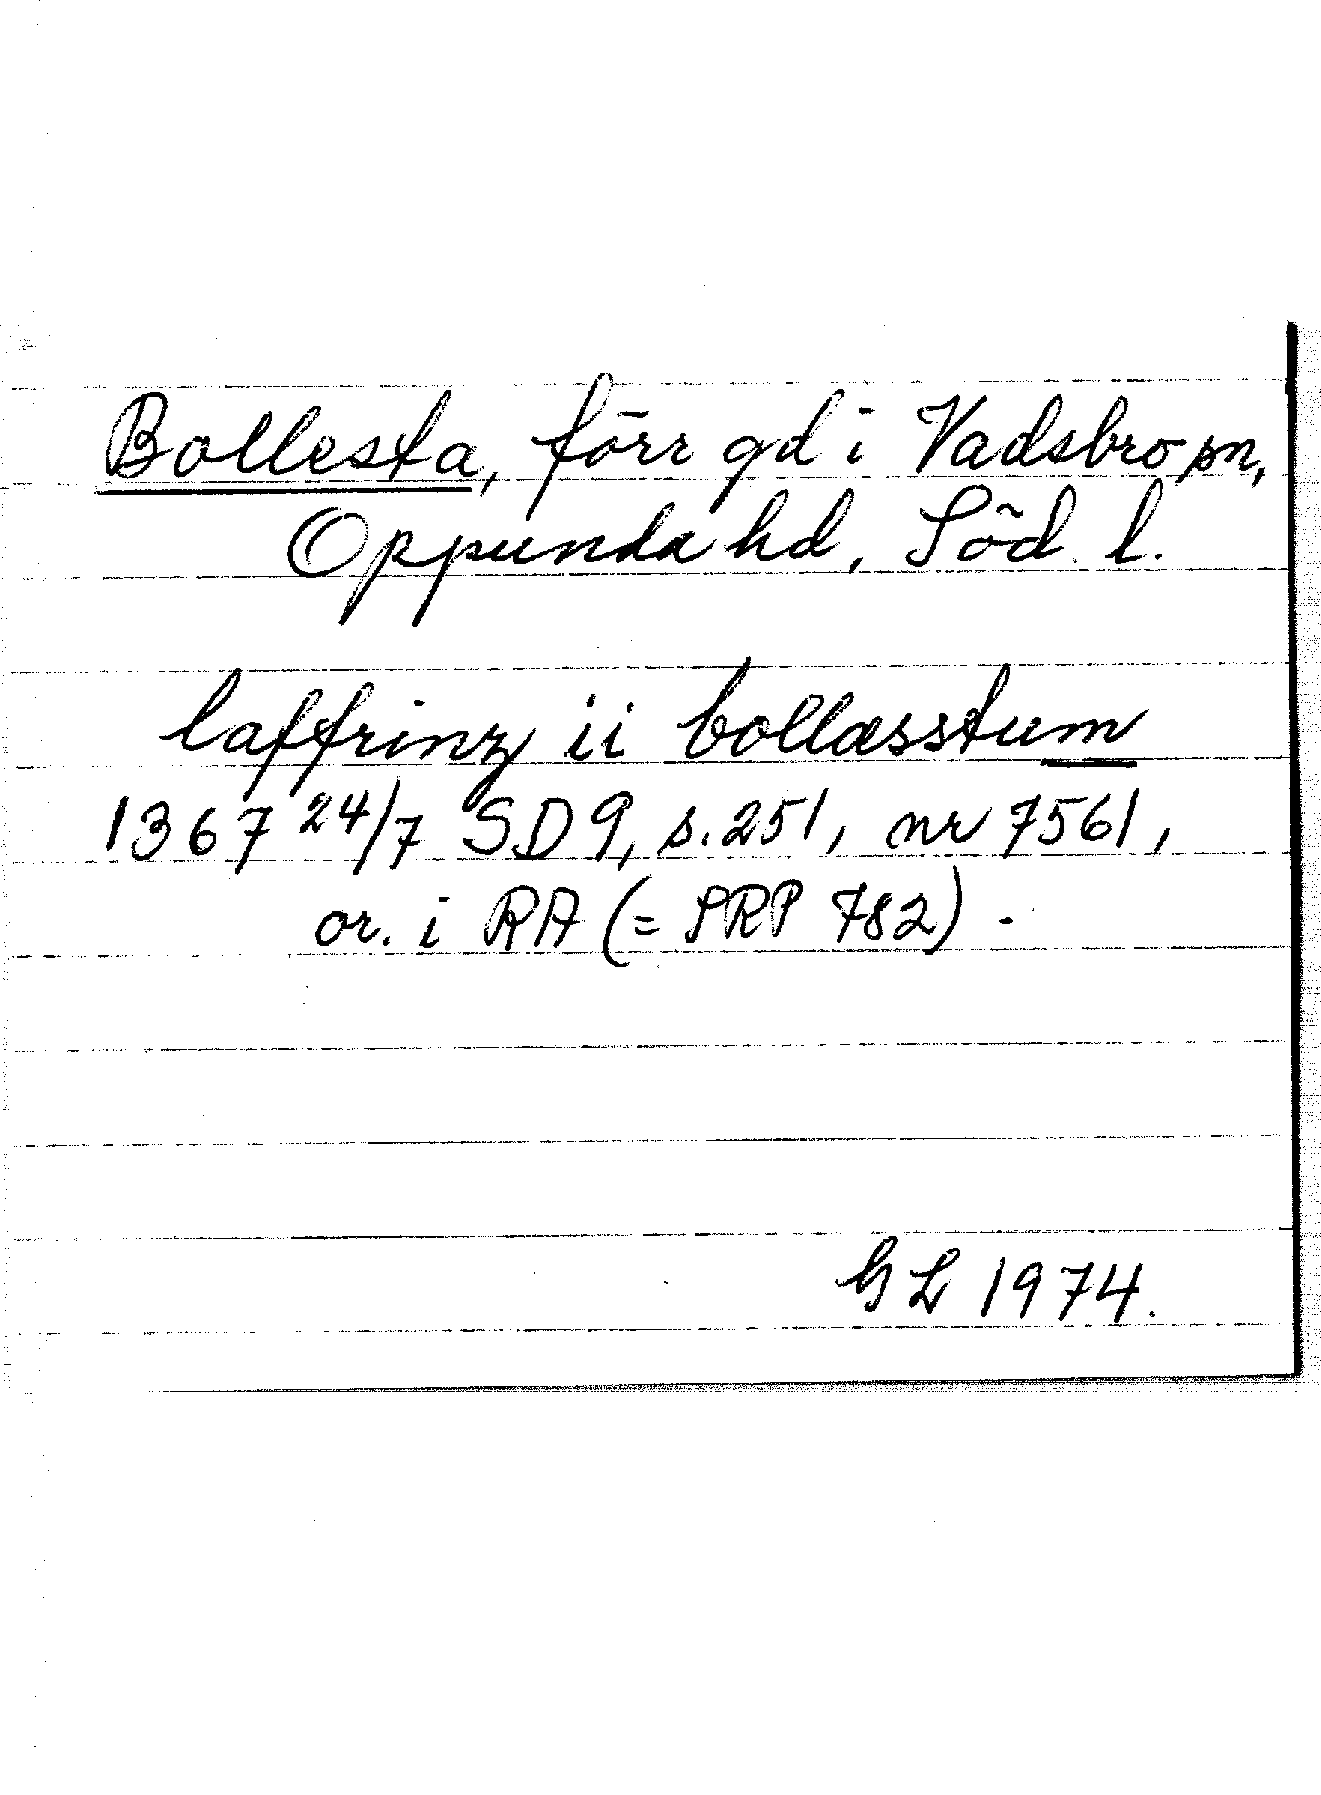 Bollesta, förr gd i Vadsbro sn,
Oppunda hd, Söd. l.
laffrinz ii bollæsstum
1367 24/7 SD 9, s. 251, nr 7561,
or. i RA (= SRP 782).
GL 1974.